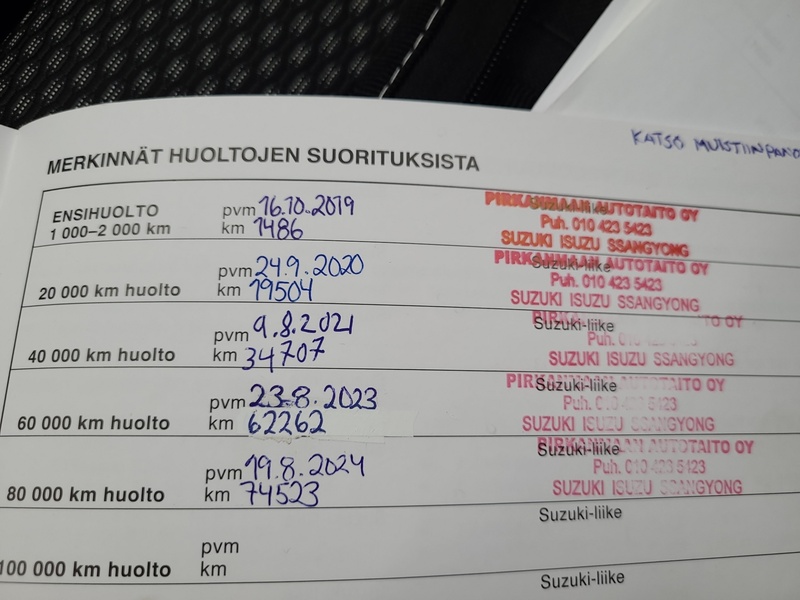 KATSO MUISTIINPANO
MERKINNÄT HUOLTOJEN SUORITUKSISTA
ENSIHUOLTO
1 000–2 000 km
pvm 16.10.2019
km 1486
PIRKANMAAN AUTOTAITO OY
Suzuki-liike
Puh. 010 423 5423
SUZUKI ISUZU SSANGYONG
20 000 km huolto
pvm 24.9.2020
km 19504
PIRKANMAAN AUTOTAITO OY
Suzuki-liike
Puh. 010 423 5423
SUZUKI ISUZU SSANGYONG
40 000 km huolto
pvm 9.8.2021
km 34707
PIRK TO OY
Suzuki-liike
Puh.
SUZUKI ISUZU SSANGYONG
60 000 km huolto
pvm 23.8.2023
km 62262
PIRKANMAAN AUTOTAITO OY
Suzuki-liike
Puh. 010 423 5423
SUZUKI ISUZU SSANGYONG
80 000 km huolto
pvm 19.8.2024
km 74523
PIRKANMAAN AUTOTAITO OY
Suzuki-liike
Puh. 010 423 5423
SUZUKI ISUZU SSANGYONG
100 000 km huolto
pvm
km
Suzuki-liike
Suzuki-liike